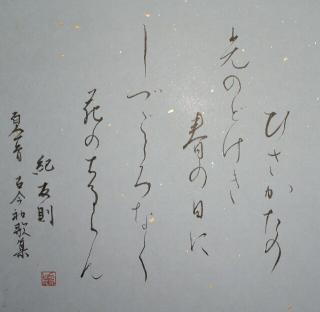 ひさかたの
光のどけき
春の日に
しづごころなく
花のちるらん
紀友則
古今和歌集